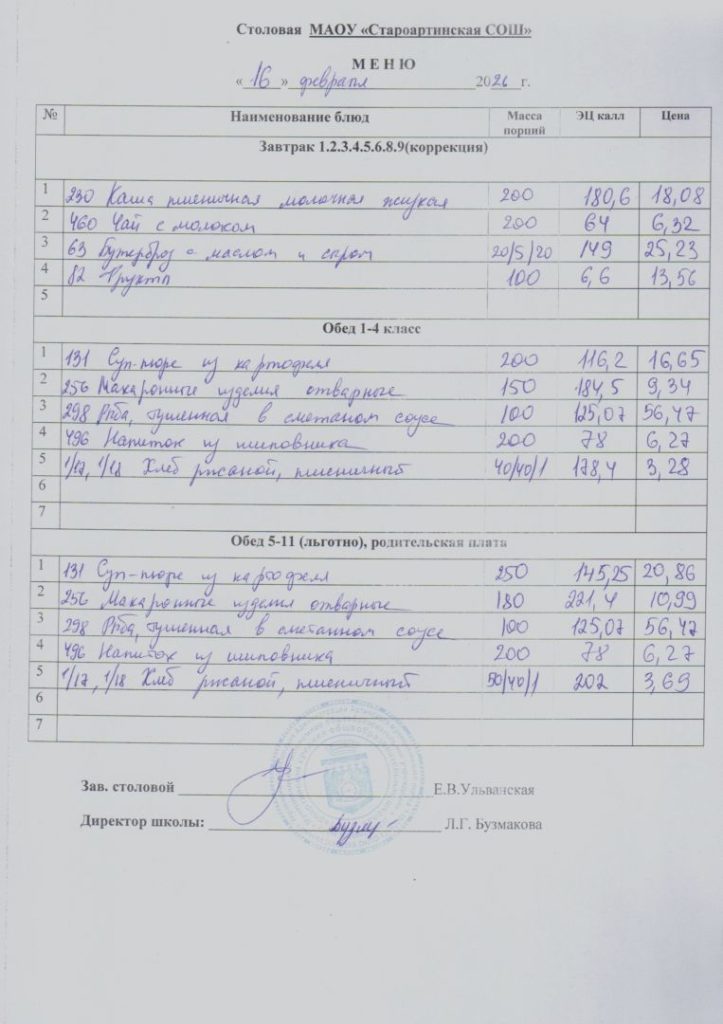 Столовая МАОУ «Староартинская СОШ»
М Е Н Ю
« 16 » февраля 2026 г.
№ Наименование блюд Масса порций ЭЦ калл Цена
Завтрак 1.2.3.4.5.6.8.9(коррекция)
1 230 Каша пшеничная молочная жидкая 200 180,6 18,08
2 460 Чай с молоком 200 64 6,32
3 63 Бутерброд с маслом и сыром 20/5/20 149 25,23
4 82 Фрукты 100 6,6 13,56
5
Обед 1-4 класс
1 131 Суп-пюре из картофеля 200 116,2 16,65
2 256 Макаронные изделия отварные 150 184,5 9,34
3 298 Рыба, тушенная в сметаном соусе 100 125,07 56,47
4 496 Напиток из шиповника 200 78 6,27
5 1/17, 1/18 Хлеб ржаной, пшеничный 40/40/1 178,4 3,28
6
7
Обед 5-11 (льготно), родительская плата
1 131 Суп-пюре из картофеля 250 145,25 20,86
2 256 Макаронные изделия отварные 180 221,4 10,99
3 298 Рыба, тушенная в сметанном соусе 100 125,07 56,47
4 496 Напиток из шиповника 200 78 6,27
5 1/17, 1/18 Хлеб ржаной, пшеничный 50/40/1 202 3,69
6
7
Зав. столовой Е.В.Ульванская
Директор школы: Л.Г. Бузмакова